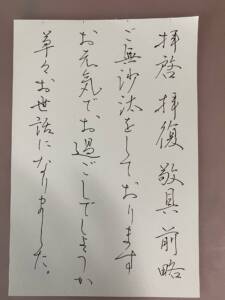 拝啓 拝復 敬具 前略
ご無沙汰をしております
お元気で、お過ごしでしょうか
草々お世話になりました。